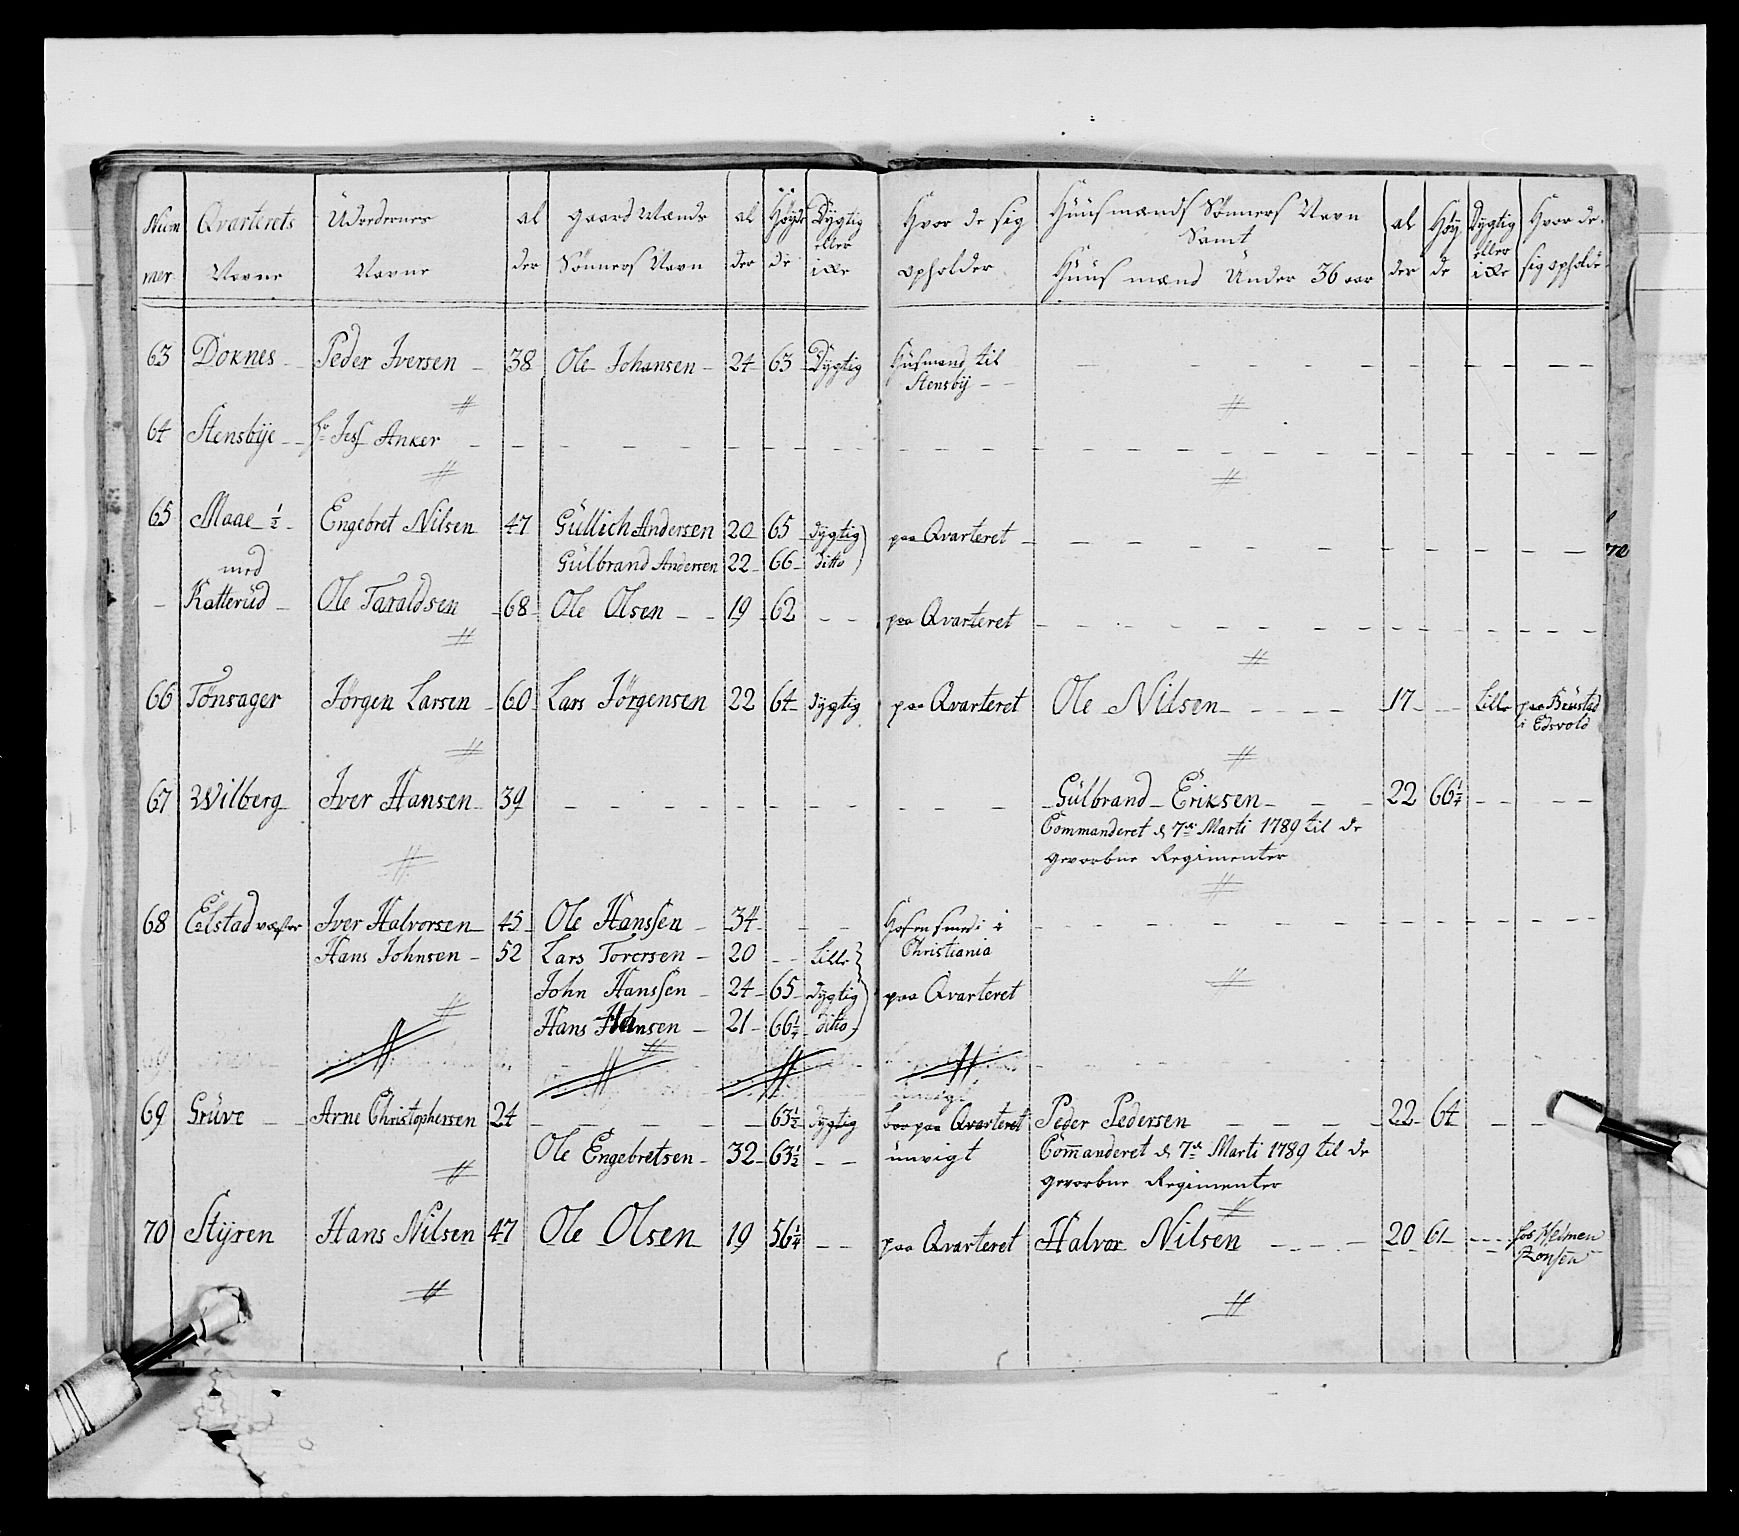 Num Qvarterets Üdredernes al gaard Mænds al Høyde Dygtig Hvor de sig Huusmænds Sønners Navn al Høy Dygtig Hvor de
eller Samt eller
mer Navne Navne der Sønners Navn der de ikke opholder Huus mænd Under 36 aar der de ikke sig opholde
63 Doknes Peder Iversen 38 Ole Johansen 24 63 Dygtig Husmand til
Stensbÿ
64 Stensbÿe Hr Jess Anker
65 Maae ½ Engebret Nilsen 47 Güllich Andersen 20 65 dygtig paa Qvarteret
med Gülbrand Andersen 22 66 ditto
Katterüd Ole Taraldsen 68 Ole Olsen 19 62 paa Qvarteret
66 Tønsager Jörgen Larsen 60 Lars Jörgensen 22 64 dygtig paa Qvarteret Ole Nilsen 17 Lille paa
i Edsvold
67 Wilberg Iver Hansen 39 Gülbrand Eriksen 22 66¼
Commanderet d 7de Marti 1789 til de
gevorbne Regimenter
68 Eelstad væster Iver Halvorsen 45 Ole Hanssen 34 i
Hans Johnsen 52 Lars Torersen 20 Lille Christiania
John Hanssen 24 65 dygtig paa Qvarteret
Hans Hansen 21 66¼ ditto
69 Grüve Arne Christophersen 24 63½ dygtig boe paa Qvarteret Peder Pedersen 22 64
Ole Engebretsen 32 63½ unvigt Commanderet d 7de Marti 1789 til de
gevorbne Regimenter
70 Stÿren Hans Nilsen 47 Ole Olsen 19 56¼ paa Qvarteret Halvor Nilsen 20 61 hos